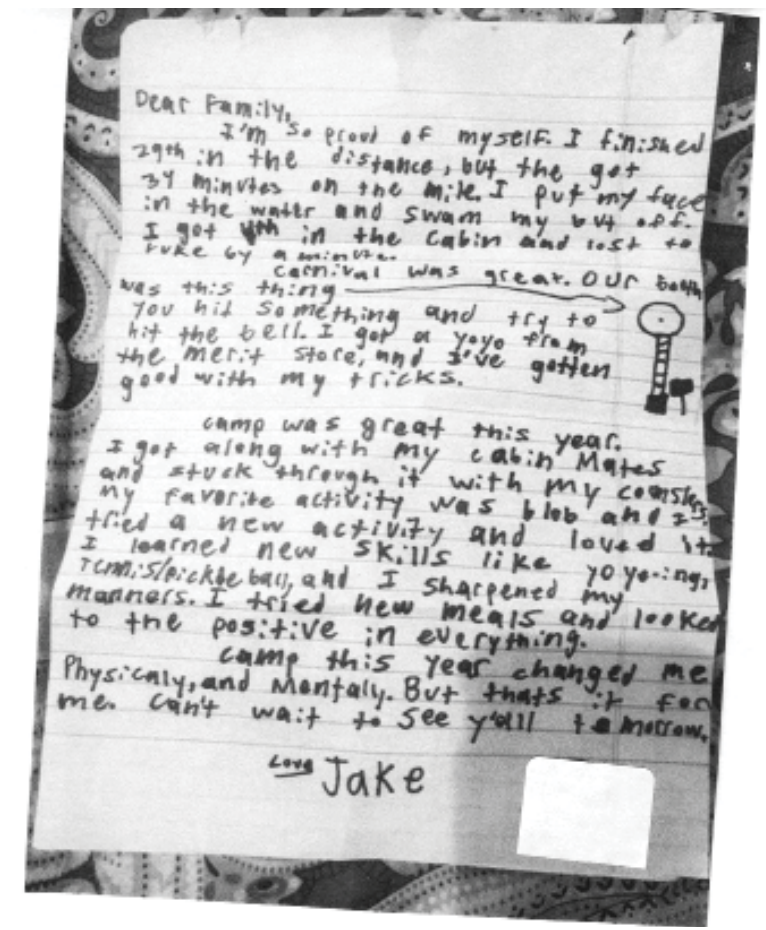 Dear Family,
I'm so proud of myself. I finished
29th in the distance, but the got
34 minutes on the mile. I put my face
in the water and swam my but off.
I got 4th in the cabin and lost to
Luke by a minute.
Carnival was great. Our booth
was this thing
You hit something and try to
hit the bell. I got a yoyo from
the merit store, and I've gotten
good with my tricks.
camp was great this year.
I got along with my cabin Mates
and stuck through it with my
My favorite activity was blob and I
tried a new activity and loved it.
I learned new skills like yoyo-ing,
Tennis/pickle ball, and I sharpened my
manners. I tried new meals and looked
to the positive in everything.
camp this year changed me
Physicaly, and Mentaly. But thats it for
me. Can't wait to see y'all tomorrow.
Love Jake